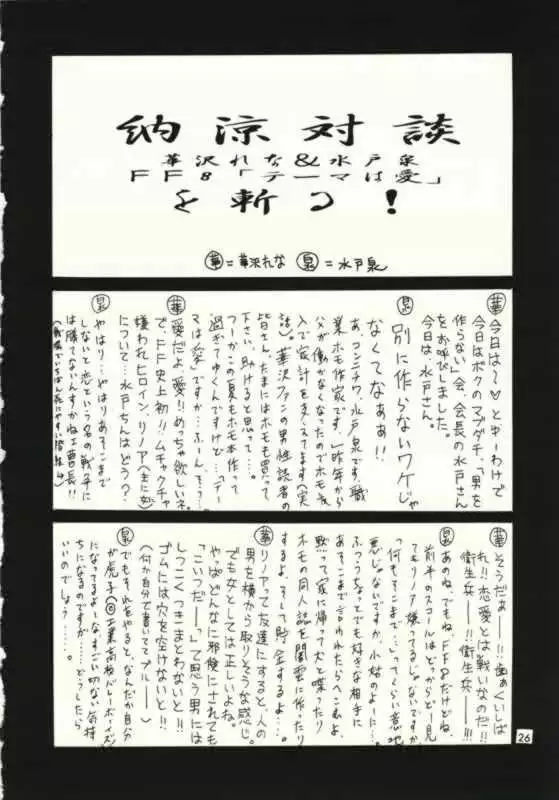 納涼対談
華沢れな&水戸泉
FF8「テーマは愛」
を斬る!
華=華沢れな 泉=水戸泉
華 今日は〜♡とゆーわけで
今日はボクのマブダチ、「男を
作らない」会、会長の水戸さん
をお呼びしました。
今日は、水戸さん。
泉 別に作らないワケじゃ
なくてなぁぁ!!
あ、コンニチワ、水戸泉です。職
業ホモ作家です。昨年から
父が働かなくなったのでホモ収
入で家計を支えてます(実
話)。華沢ファンの男性読者の
皆さん、たまにはホモも買って
下さい。助けると思って……。
つーかこの夏もホモ本作って
過ぎてゆくんですけど…「テー
マは愛」ですか…ふーん…そっ…
華 愛だよ、愛!!めちゃ欲しいネ。
で、FF史上初!!ムチャクチャ
嫌われヒロイン、リノア(主に女)
について…水戸さんはどう?
泉 やはり…やはりあそこまで
しないと恋という名の戦争に
は勝てないんすかね工曹長!!
華 そうだぁ――!!歯ぁくいしば
れ!!恋愛とは戦いなのだ!!
衛生兵――!!衛生兵――!!!
泉 あのね、でもね、FF8だけどね、
前半のスコールはどっからどー見
てもリノア嫌ってるじゃないですか
「何もそこまで…」ってくらい意地
悪じゃないですか、小姑のよーに…。
ふつうちょっとでも好きな相手に
あそこまで言われたらへこむよ。
黙って家に帰って犬と喋ったり
ホモの同人誌を闇雲に作ったり
するよ。そして貯金するよ…。
華 リノアって友達にすると、人の
男を横から取りそうな感じ。
でも女としては正しいよね。
やっぱどんなに邪険にされても
「こいつだ――」って思う男には
しつこくつきまとわないと!!
ゴムには穴を空けないと!!
(何か自分で書いててブルー――)
泉 でもそれをやると、なんだか自分
が虎子(©工業高校バレーボーイズ)
になってるよーなすごい切ない気持
ちになるのですが……どっしたら
いいのでしょう……。
26